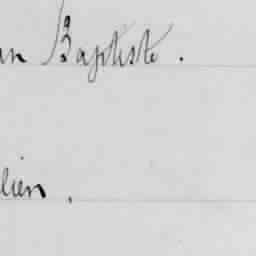 an Baptiste.
lien.